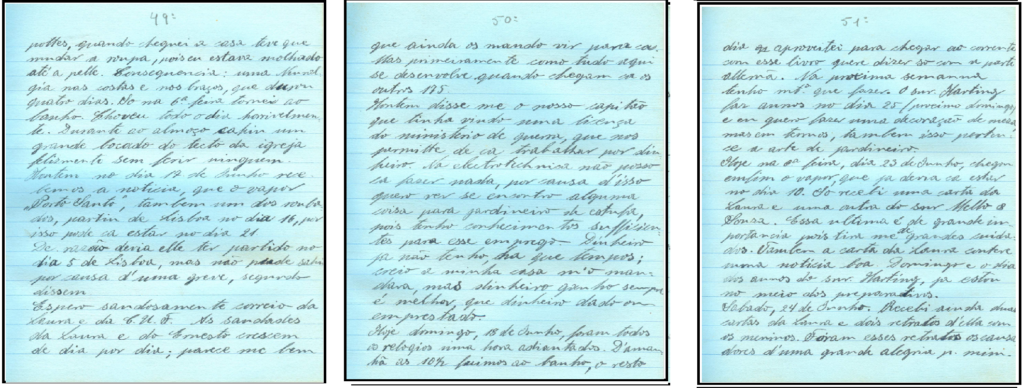 49:
pottes, quando cheguei a casa tive que
mudar a roupa, pois eu estava molhado
até a pelle. Consequencia: uma nevral-
gia nas costas e nos braços, que durou
quatro dias. So na 6ª feira tornei ao
banho. Choveu todo o dia horrivelmen-
te. Durante ao almoço cahiu um
grande bocado do tecto da igreja
felizmente sem ferir ninguem.
Hontem no dia 17 de Junho rece-
bemos a noticia, que o vapor
"Porto Santo", tambem um dos rouba-
dos, partiu de Lisboa no dia 16, por
isso pode ca estar no dia 21
De razão devia elle ter partido no
dia 5 de Lisboa, mas não pude sahir
por causa d'uma greve, segundo
dissem.
Espero saudosamente correio da
Laura e da C.U.F. As saudades
da Laura e do Ernesto crescem
de dia por dia; parece me bem
50:
que ainda os mando vir para ca.
Mas primeiramente como tudo aqui
se desenvolve quando chegam ca os
outros 175.
Hontem disse me o nosso capitão
que tinha vindo uma licença
do ministério de guerra, que nos
permitte de ca trabalhar por din-
heiro. Na electrotechnica não posso
ca fazer nada, por causa d'isso
quero ver se encontro alguma
coisa para jardineiro de estufa,
pois tenho conhecimentos sufficien-
tes para esse emprego. Dinheiro
ja não tenho, ha que tempos;
creio a minha casa m'o man-
dara, mas dinheiro ganho sempre
é melhor, que dinheiro dado ou
emprestado.
Hoje domingo, 18 de Junho, foram todos
os relogios uma hora adientados. D'aman-
hã as 10½ fuimos ao banho, o resto
51:
dia qe aproveitei para chegar ao corrente
com esse livro quere dizer so com a parte
allemã. Na proxima semanna
tenho mtº que fazer. O snr. Harting
faz annos no dia 25 (procimo domingo)
e eu quero fazer uma decoração de mesa
mas em termos, tambem isso perten-
ce a arte de jardineiro.
Hoje na 6ª feira, dia 23 de Junho, chegou
emfim o vapor, que ja devia ca estar
no dia 10. Só recebi uma carta da
Laura e uma outra do snr Mello &
Sousa. Essa ultima é de grande im-
portancia pois tira me de grandes cuida-
dos. Tambem a carta da Laura contem
uma noticia boa. Domingo e o dia
dos annos do snr. Harting, ja estou
no meio dos preparativos.
Sabado, 24 de Junho. Recebi ainda duas
cartas da Laura e dois retratos d'ella com
os meninos. Foram esses retratos os causa-
dores d'uma grande alegria p. mim